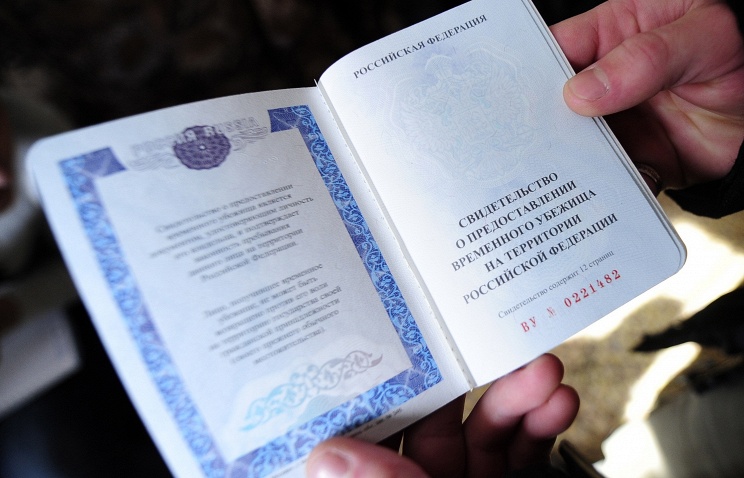 Свидетельство о предоставлении
временного убежища является
документом, удостоверяющим личность
и подтверждает
законность пребывания
данного лица на территории
Российской Федерации
Лицо, получившее временное
убежище, не может быть
возвращено против его воли
государства своей
гражданской принадлежности
(своего прежнего обычного
местожительства)
РОССИЙСКАЯ ФЕДЕРАЦИЯ
СВИДЕТЕЛЬСТВО
О ПРЕДОСТАВЛЕНИИ
ВРЕМЕННОГО УБЕЖИЩА
НА ТЕРРИТОРИИ
РОССИЙСКОЙ ФЕДЕРАЦИИ
Свидетельство содержит 12 страниц
ВУ № 0221482